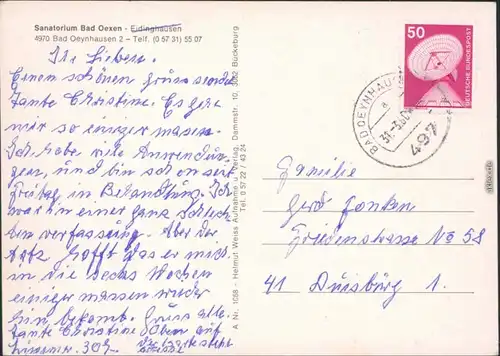 Sanatorium Bad Oexen - Eidinghausen
4970 Bad Oeynhausen 2 - Telf. (0 57 31) 55 07
Ihr Lieben.
Einen schönen Gruss sendet
Tante Christine. Es geht
mir so einiger masen.
Ich habe viele Anwendun-
gen, und bin schon seit
Freitag in Behandlung. Ich
war in einer ganz schlech
ten verfassung. Aber der
Artz hofft das er mich
in die sechs Wochen
einiger massen wieder
hin bekomt. Gruss alle.
Tante Christine oben auf
Zimmer 309 steht
A Nr. 1068 - Helmut Weiss Aufnahme u. Verlag, Dammstr. 10, 3062 Bückeburg
Tel. 0 57 22 / 43 24
50
DEUTSCHE BUNDESPOST
BAD OEYNHAUSEN
a
31-3.80
497
Familie
Gerd Fonken
Friedenstrasse No 58
41 Duisburg 1.